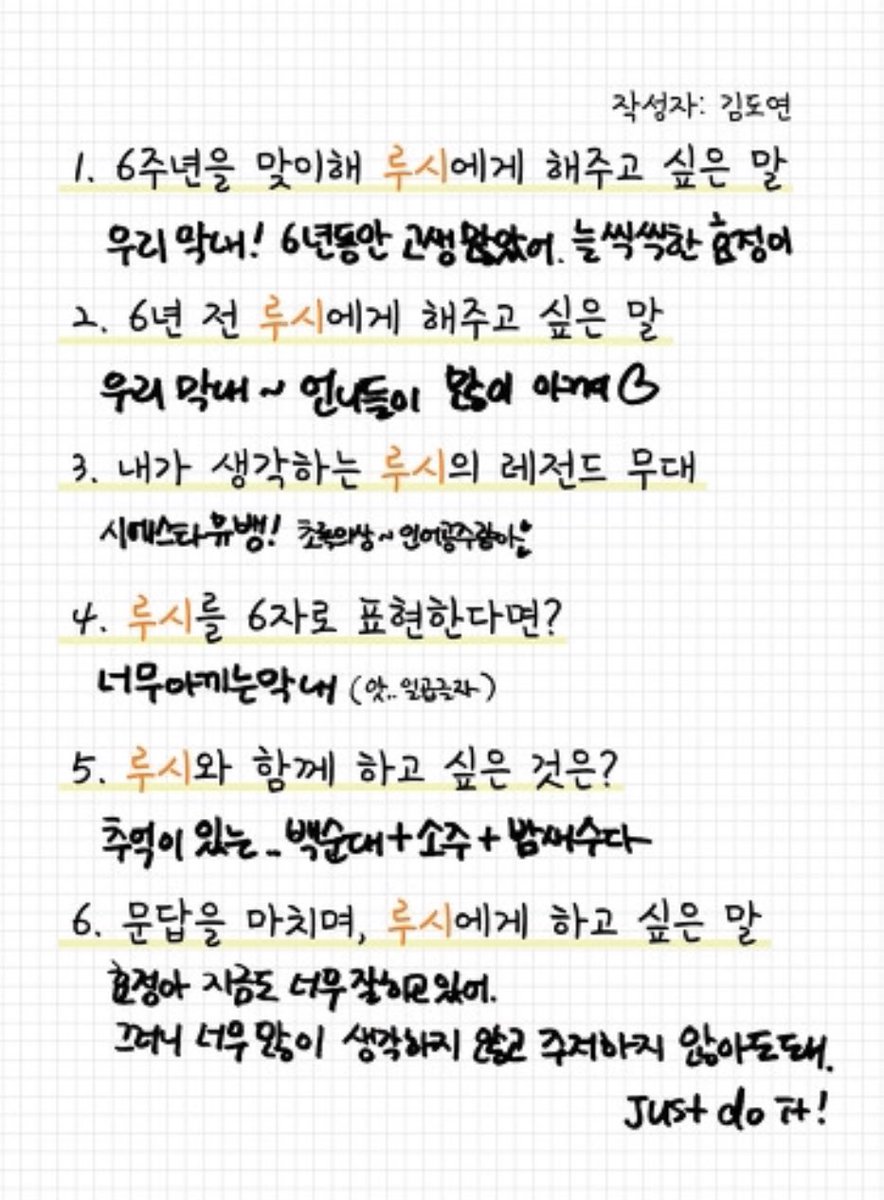 작성자: 김도연
1. 6주년을 맞이해 루시에게 해주고 싶은 말
우리 막내! 6년동안 고생 많았어. 늘 씩씩한 효정이
2. 6년 전 루시에게 해주고 싶은 말
우리 막내~ 언니들이 많이 아껴♡
3. 내가 생각하는 루시의 레전드 무대
시에스타 뮤뱅! 초록의상~ 인어공주람아
4. 루시를 6자로 표현한다면?
너무아끼는막내 (앗..일곱글자)
5. 루시와 함께 하고 싶은 것은?
추억이 있는.. 백순대+소주+밤새수다
6. 문답을 마치며, 루시에게 하고 싶은 말
효정아 지금도 너무 잘하고 있어.
그러니 너무 많이 생각하지 않고 주저하지 않아도 돼.
Just do it!